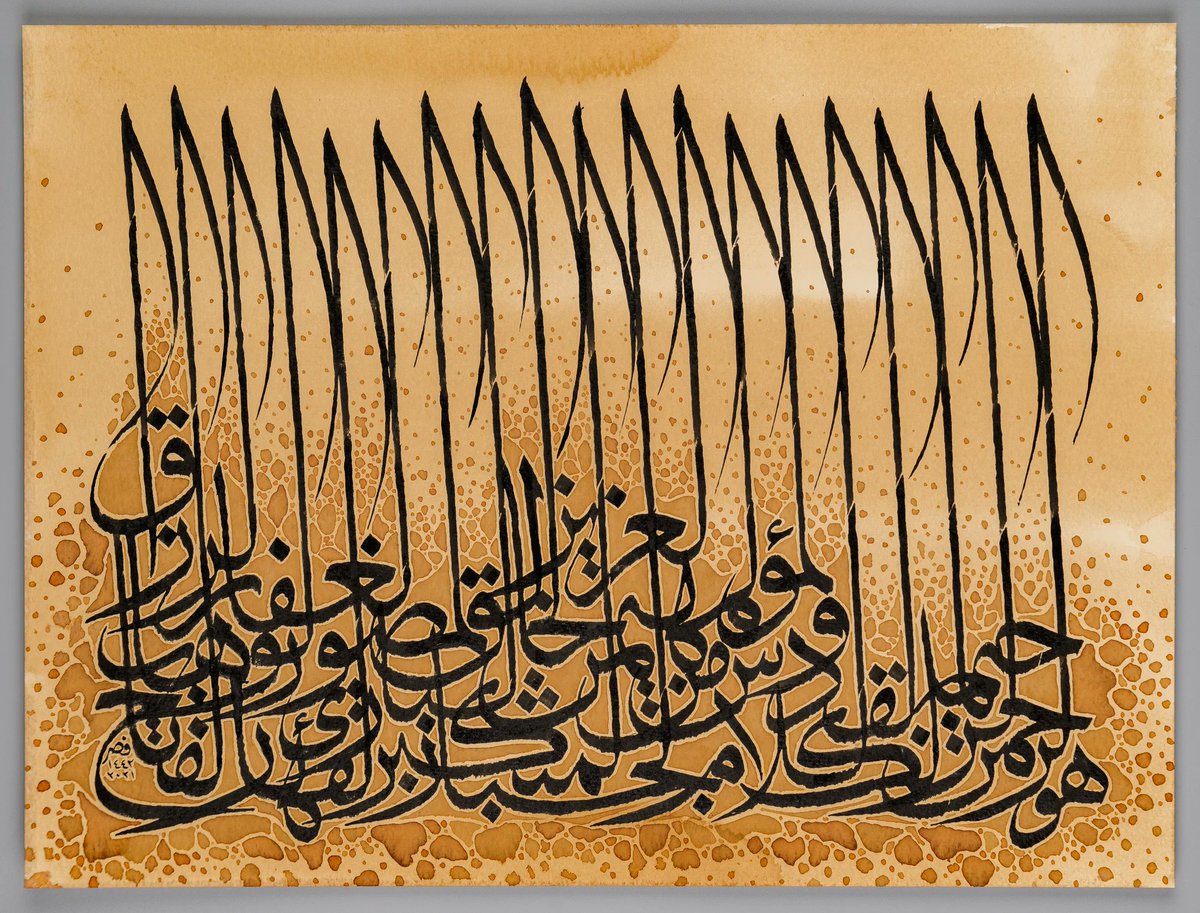 هو الرحمن الرحيم الملك القدوس السلام المؤمن المهيمن العزيز الجبار المتكبر الخالق البارئ المصور الغفار القهار الوهاب الرزاق الفتاح
١٤٤٢
٢٠٢١